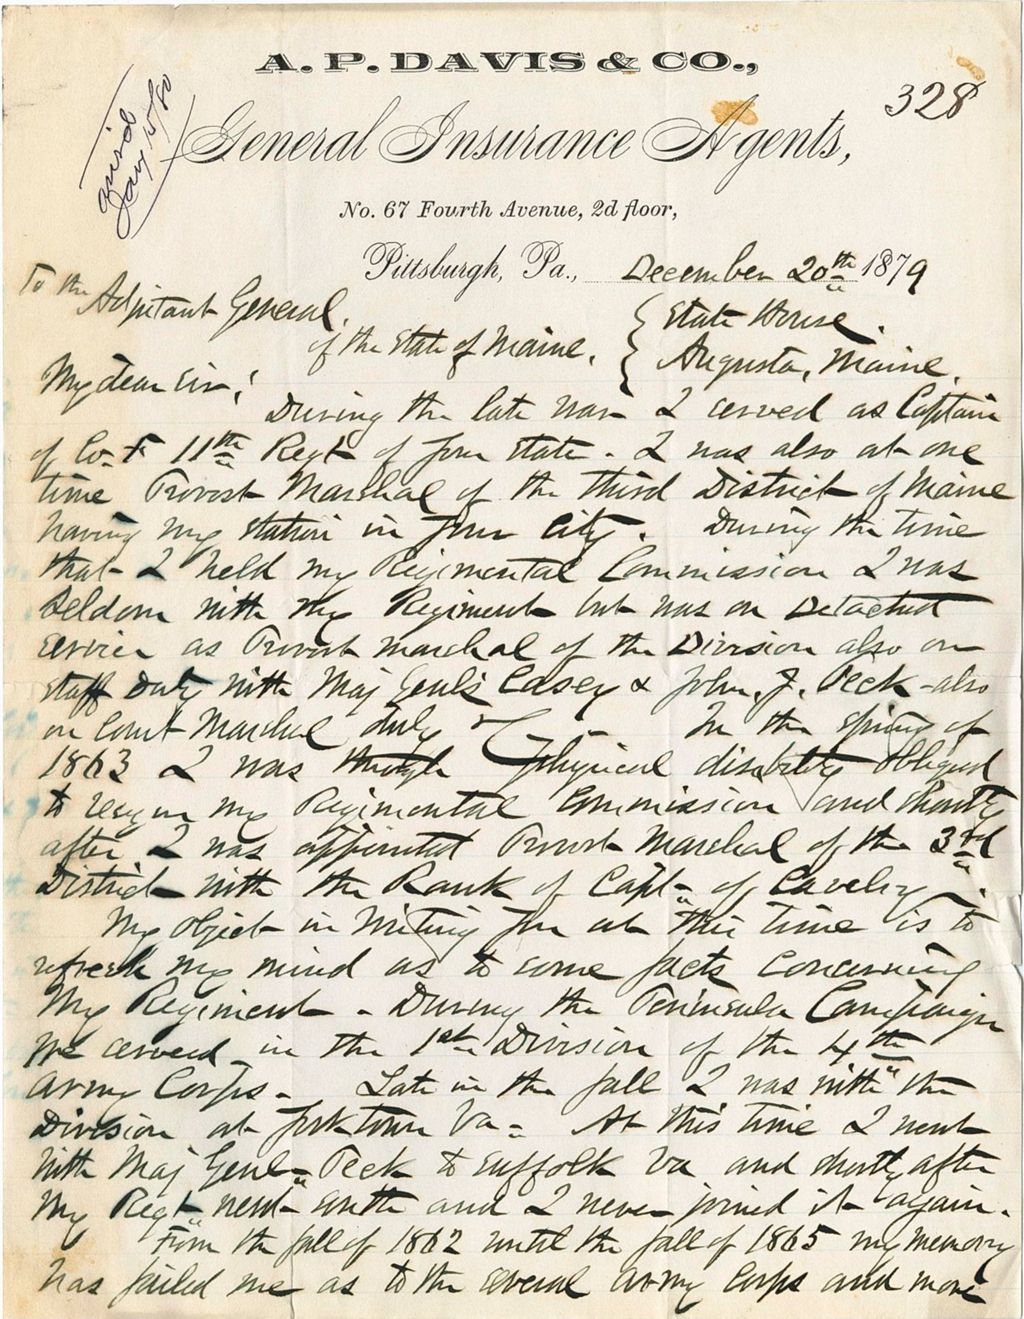 A. P. DAVIS & CO.,
328
General Insurance Agents,
Jany 15/80
No. 67 Fourth Avenue, 2d floor,
Pittsburgh, Pa., December 20th 1879
To the Adjutant General,
of the State of Maine. { State House.
Augusta, Maine.
My dear Sir;
During the late war I served as Captain
of Co. F 11th Regt of your State - I was also at one
time Provost Marshal of the third District of Maine
having my station in your City. During the time
that I held my Regimental Commission I was
seldom with my Regiment but was on Detached
service as Provost Marshal of the Division also on
staff duty with Maj Genls Casey & John. J. Peck - also
on Court Marshal duty - In the spring of
1863 I was through physical disability obliged
to resign my Regimental Commission and shortly
after I was appointed Provost Marshal of the 3rd
District with the Rank of Capt of Cavelry.
My object in writing you at this time is to
refresh my mind as to some facts concerning
My Regiment - During the Peninsula Campaign
we served in the 1st Division of the 4th
Army Corps - Late in the fall I was with the
Division at Yorktown Va - At this time I went
with Maj Genl Peck to Suffolk Va and shortly after
my Regt went south and I never joined it again.
From the fall of 1862 until the fall of 1865 my memory
has failed me as to the several army Corps and more